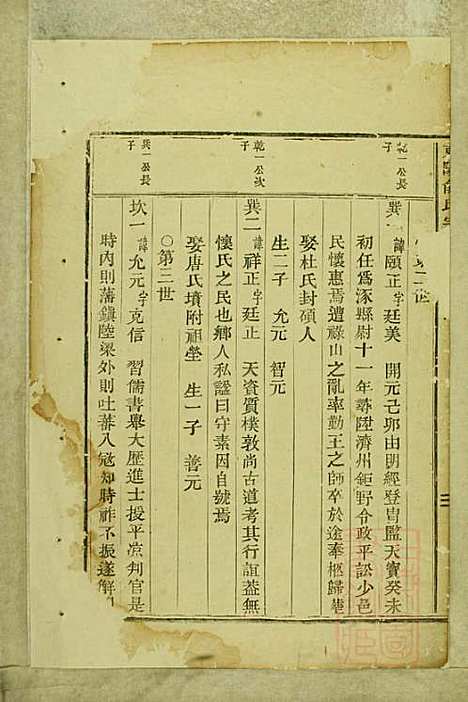 乾一公長子
巽一 諱頤正字廷美 開元己卯由明經登冑監天寶癸未
初任爲涿縣尉十一年尋陞濟州鉅野令政平訟少邑
民懷惠焉遭祿山之亂率勤王之師卒於途奉柩歸塟
娶杜氏封碩人
生二子 允元 智元
乾一公次子
巽二 諱祥正字廷止 天資質樸敦尚古道考其行誼葢無
懷氏之民也鄉人私諡曰守素因自號焉
娶唐氏墳附祖塋 生一子 善元
○第三世
巽一公長子
坎一 諱允元字克信 習儒書舉大歷進士授平凉判官是
時內則藩鎮陸梁外則吐蕃入寇知時祚不振遂解